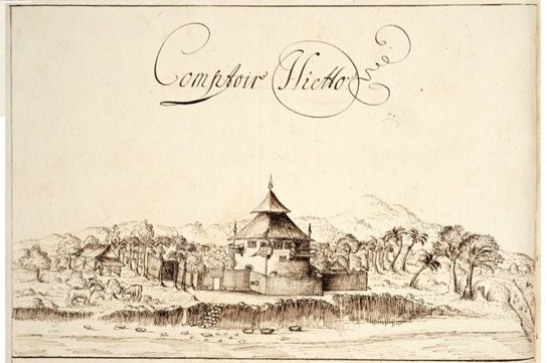 Comptoir Hietto